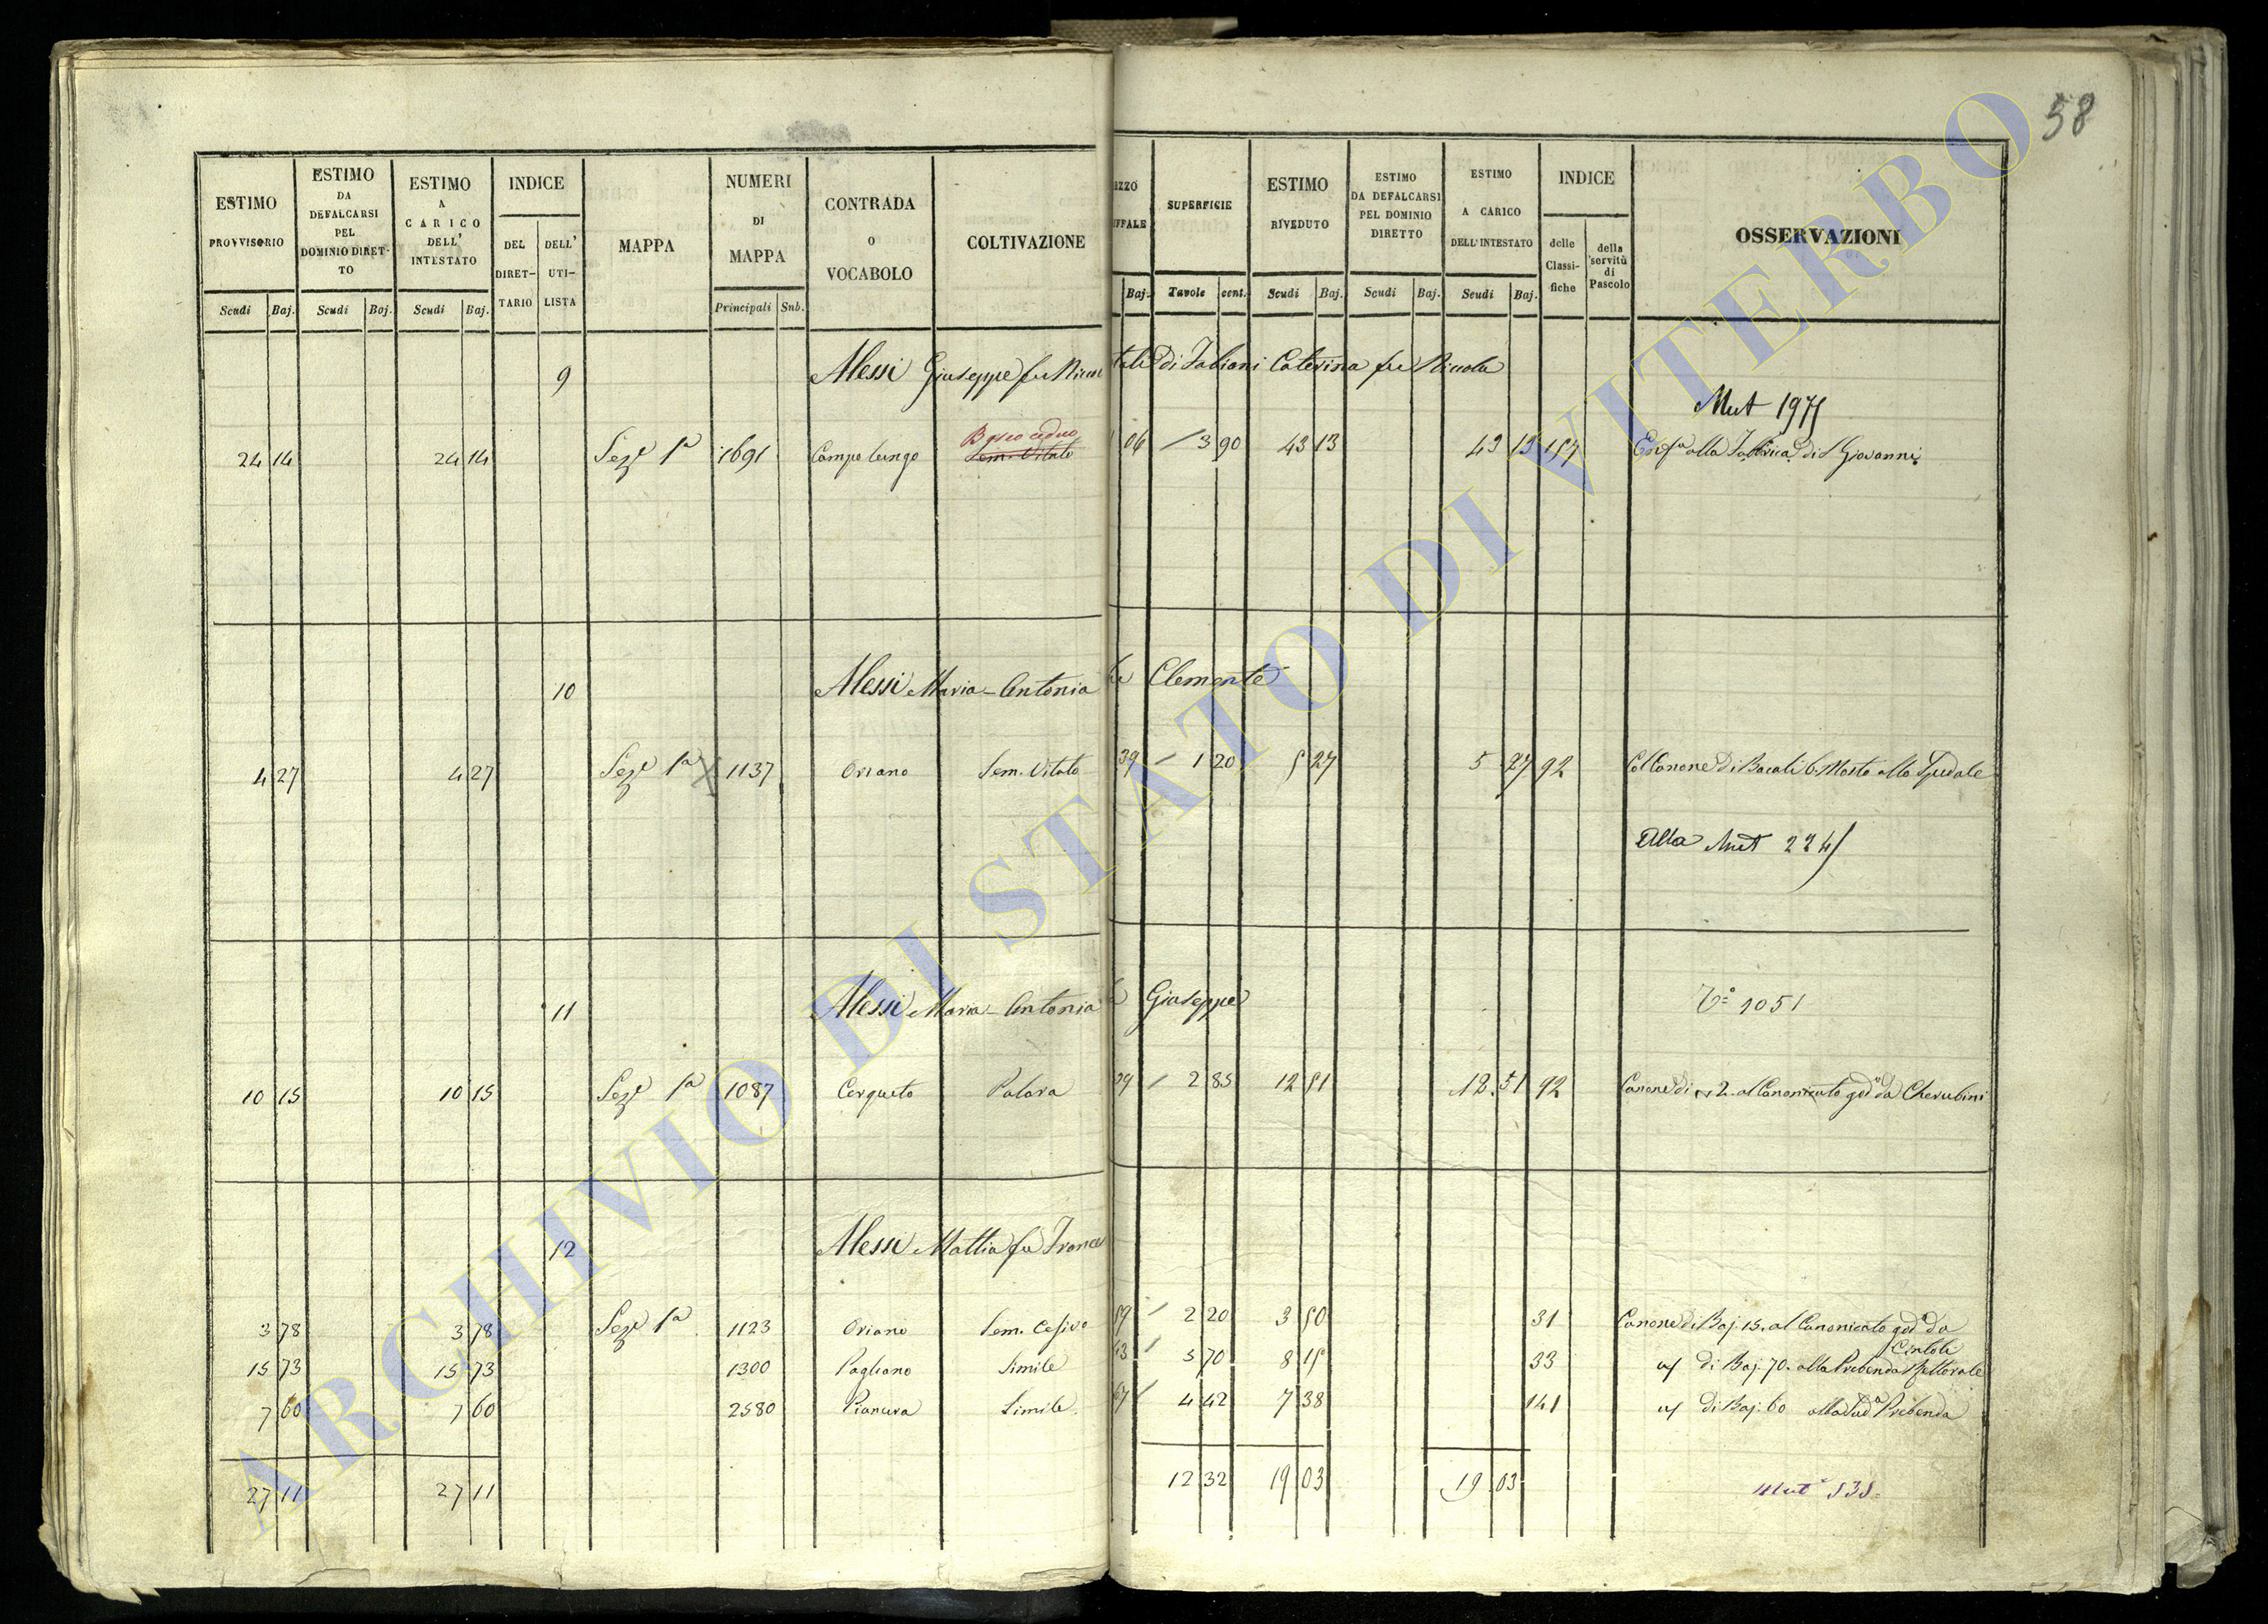 58
ESTIMO PROVVISORIO
ESTIMO DA DEFALCARSI PEL DOMINIO DIRETTO
ESTIMO A CARICO DELL' INTESTATO
INDICE
DEL DIRETTARIO
DELL' UTILISTA
MAPPA
NUMERI DI MAPPA
CONTRADA O VOCABOLO
COLTIVAZIONE
IZZO
IFFALE
SUPERFICIE
ESTIMO RIVEDUTO
ESTIMO DA DEFALCARSI PEL DOMINIO DIRETTO
ESTIMO A CARICO DELL' INTESTATO
INDICE
delle Classifiche
della servitù di Pascolo
OSSERVAZIONI
Scudi Baj. Scudi Baj. Scudi Baj. Principali Sub. Baj. Tavole cent. Scudi Baj. Scudi Baj. Scudi Baj.
9 Alessi Giuseppe fu di Fabiani Caterina fu Nicola
Mut 1975
Bosco ceduo
24 14 24 14 Seze 1a 1691 Campo lungo Sem. Vitato 06 3 90 43 13 43 13 157 alla Fabbrica di S Giovanni
10 Alessi Maria-Antonia Clemente
4 27 4 27 Seze 1a 1137 Oriano Sem. Vitato 39 1 20 5 27 5 27 92 Col Canone di Bocali 6. Mosto allo Spedale
Alla Mut 224
11 Alessi Maria-Antonia Giuseppe
Va 1051
10 15 10 15 Seze 1a 1087 Cerqueto Palara 29 2 85 12 51 12.51 92 Canone di 2. al Canonicato god da Cherubini
12 Alessi Mattia fu Frances
3 78 3 78 Seze 1a 1123 Oriano Sem. Cesivo 59 2 20 3 50 31 Canone di Baj. 15. al Canonicato god da
Cintoli
15 73 15 73 1300 Pagliano Simile 43 5 70 8 15 33 di Baj. 70. alla Prebenda Rettorale
7 60 7 60 2580 Pianura Simile 67 4 42 7 38 141 di Baj. 60 alla Sud.a Prebenda
27 11 27 11 12 32 19 03 19.03 Mut 838
ARCHIVIO DI STATO DI VITERBO